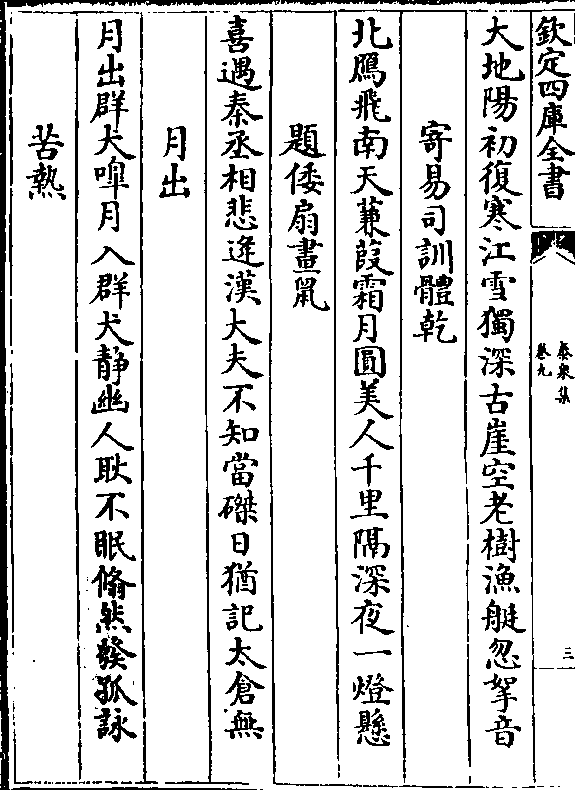 欽定四庫全書
泰泉集
卷九
三
大地陽初復寒江雪獨深古崖空老樹漁艇忽挐音
寄易司訓體乾
北鴈飛南天蒹葭霜月圓美人千里隔深夜一燈懸
題倭扇畫鼠
喜遇秦丞相悲逢漢大夫不知當磔日猶記太倉無
月出
月出群犬嘷月入群犬靜幽人耿不眠翛然發孤詠
苦熱